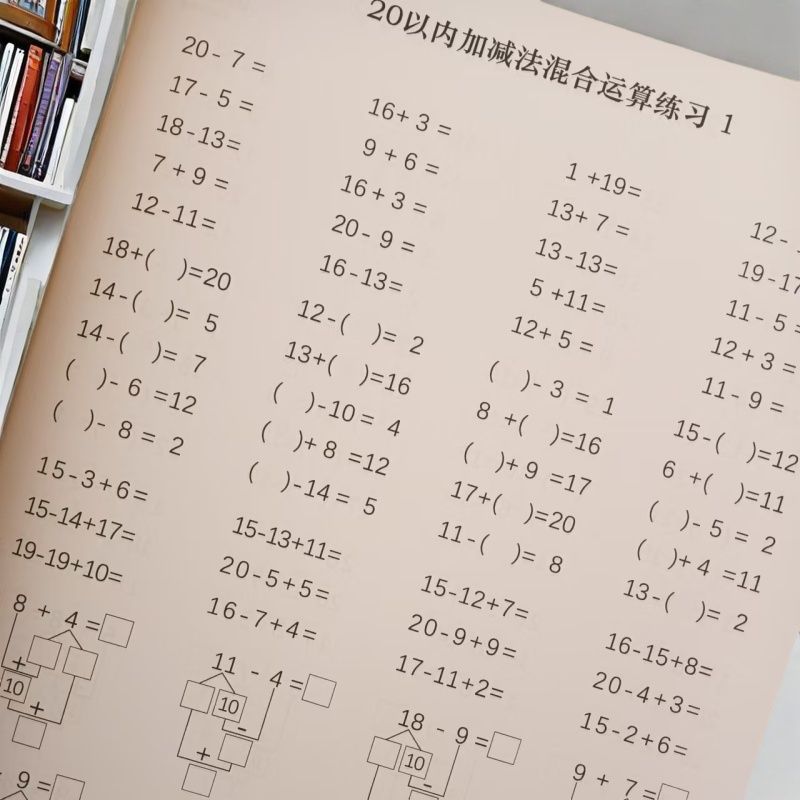 20以内加减法混合运算练习 1
20- 7 =
17- 5 =
18-13=
7 + 9 =
12-11=
16+ 3 =
9 + 6 =
16+ 3 =
20- 9 =
16-13=
1 +19=
13+ 7 =
13-13=
5 +11=
12+ 5 =
12-
19-17
11- 5 =
12+ 3 =
11- 9 =
18+( )=20
14-( )= 5
14-( )= 7
( )- 6 =12
( )- 8 = 2
12-( )= 2
13+( )=16
( )-10= 4
( )+ 8 =12
( )-14= 5
( )- 3 = 1
8 +( )=16
( )+ 9 =17
17+( )=20
11-( )= 8
15-( )=12
6 +( )=11
( )- 5 = 2
( )+ 4 =11
13-( )= 2
15-3+6=
15-14+17=
19-19+10=
15-13+11=
20-5+5=
16-7+4=
15-12+7=
20-9+9=
17-11+2=
16-15+8=
20-4+3=
15-2+6=
8 + 4 =
+
10
+
11 - 4 =
10
-
+
18 - 9 =
10
-
9 + 7 =
9 =